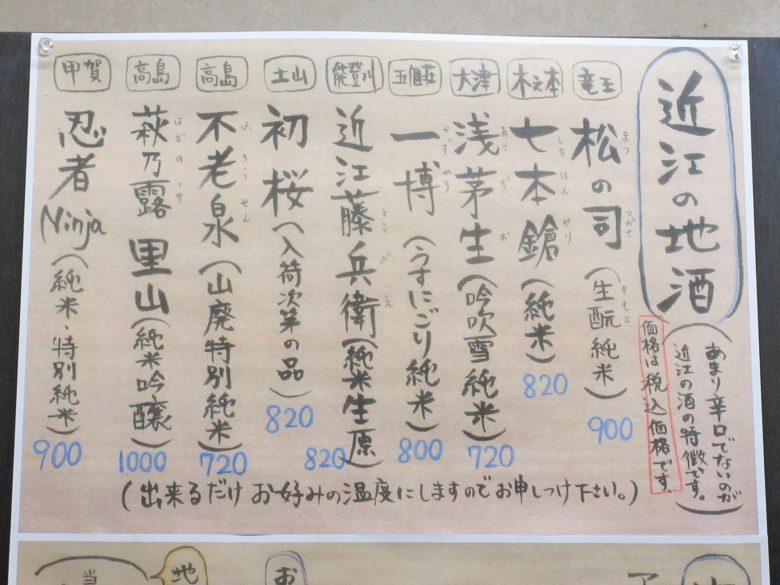 近江の地酒
（あまり辛口でないのが
近江の酒の特徴です。）
価格は税込価格です。
竜王
松の司（生酛純米）
まつ つかさ きもと
900
木之本
七本鎗（純米）
しちほんやり
820
大津
浅茅生（吟吹雪純米）
あさぢお
720
五個荘
一博（うすにごり純米）
かずひろ
800
能登川
近江藤兵衛（純米生原）
とうべえ
820
土山
初桜（入荷次第の品）
820
高島
不老泉（山廃特別純米）
ふろうせん
720
高島
萩乃露 里山（純米吟醸）
はぎのつゆ
1000
甲賀
忍者Ninja（純米・特別純米）
900
（出来るだけお好みの温度にしますのでお申しつけ下さい。）
地
お